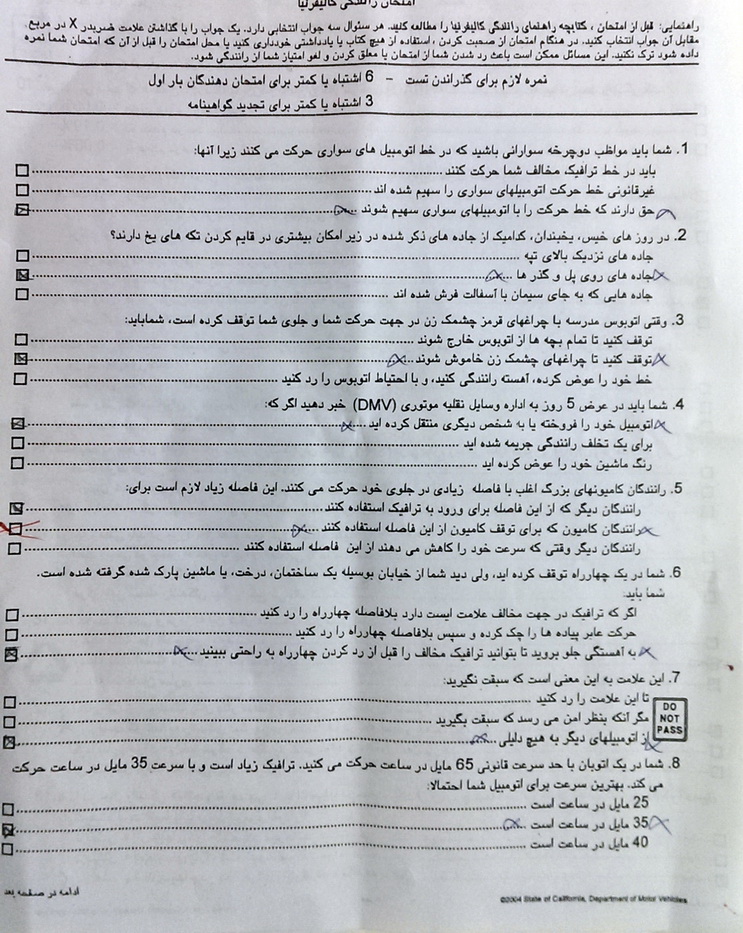 امتحان رانندگی کالیفرنیا
راهنمایی: قبل از امتحان ، کتابچه راهنمای رانندگی کالیفرنیا را مطالعه کنید. هر سئوال سه جواب انتخابی دارد. یک جواب را با گذاشتن علامت ضربدر X در مربع
مقابل آن جواب انتخاب کنید. در هنگام امتحان از صحبت کردن ، استفاده از هیچ کتاب یا یادداشتی خودداری کنید یا محل امتحان را قبل از آن که امتحان شما نمره
داده شود ترک نکنید. این مسائل ممکن است باعث رد شدن شما از امتحان یا معلق کردن و لغو امتیاز شما از رانندگی شود.
نمره لازم برای گذراندن تست – 6 اشتباه یا کمتر برای امتحان دهندگان بار اول
3 اشتباه یا کمتر برای تجدید گواهینامه
1. شما باید مواظب دوچرخه سوارانی باشید که در خط اتومبیل های سواری حرکت می کنند زیرا آنها:
باید در خط ترافیک مخالف شما حرکت کنند
غیرقانونی خط حرکت اتومبیلهای سواری را سهیم شده اند
حق دارند که خط حرکت را با اتومبیلهای سواری سهیم شوند
2. در روز های خیس، یخبندان، کدامیک از جاده های ذکر شده در زیر امکان بیشتری در قایم کردن تکه های یخ دارند؟
جاده های نزدیک بالای تپه
جاده های روی پل و گذر ها
جاده هایی که به جای سیمان با آسفالت فرش شده اند
3. وقتی اتوبوس مدرسه با چراغهای قرمز چشمک زن در جهت حرکت شما و جلوی شما توقف کرده است، شماباید:
توقف کنید تا تمام بچه ها از اتوبوس خارج شوند
توقف کنید تا چراغهای چشمک زن خاموش شوند
خط خود را عوض کرده، آهسته رانندگی کنید، و با احتیاط اتوبوس را رد کنید
4. شما باید در عرض 5 روز به اداره وسایل نقلیه موتوری (DMV) خبر دهید اگر که:
اتومبیل خود را فروخته یا به شخص دیگری منتقل کرده اید
برای یک تخلف رانندگی جریمه شده اید
رنگ ماشین خود را عوض کرده اید
5. رانندگان کامیونهای بزرگ اغلب با فاصله زیادی در جلوی خود حرکت می کنند. این فاصله زیاد لازم است برای:
رانندگان دیگر که از این فاصله برای ورود به ترافیک استفاده کنند
رانندگان کامیون که برای توقف کامیون از این فاصله استفاده کنند
رانندگان دیگر وقتی که سرعت خود را کاهش می دهند از این فاصله استفاده کنند
6. شما در یک چهارراه توقف کرده اید، ولی دید شما از خیابان بوسیله یک ساختمان، درخت، یا ماشین پارک شده گرفته شده است.
شما باید:
اگر که ترافیک در جهت مخالف علامت ایست دارد بلافاصله چهارراه را رد کنید
حرکت عابر پیاده ها را چک کرده و سپس بلافاصله چهارراه را رد کنید
به آهستگی جلو بروید تا بتوانید ترافیک مخالف را قبل از رد کردن چهارراه به راحتی ببینید
7. این علامت به این معنی است که سبقت نگیرید:
DO
NOT
PASS
تا این علامت را رد کنید
مگر آنکه بنظر امن می رسد که سبقت بگیرید
از اتومبیلهای دیگر به هیچ دلیلی
8. شما در یک اتوبان با حد سرعت قانونی 65 مایل در ساعت حرکت می کنید. ترافیک زیاد است و با سرعت 35 مایل در ساعت حرکت
می کند. بهترین سرعت برای اتومبیل شما احتمالا:
25 مایل در ساعت است
35 مایل در ساعت است
40 مایل در ساعت است
ادامه در صفحه بعد
©2004 State of California, Department of Motor Vehicles